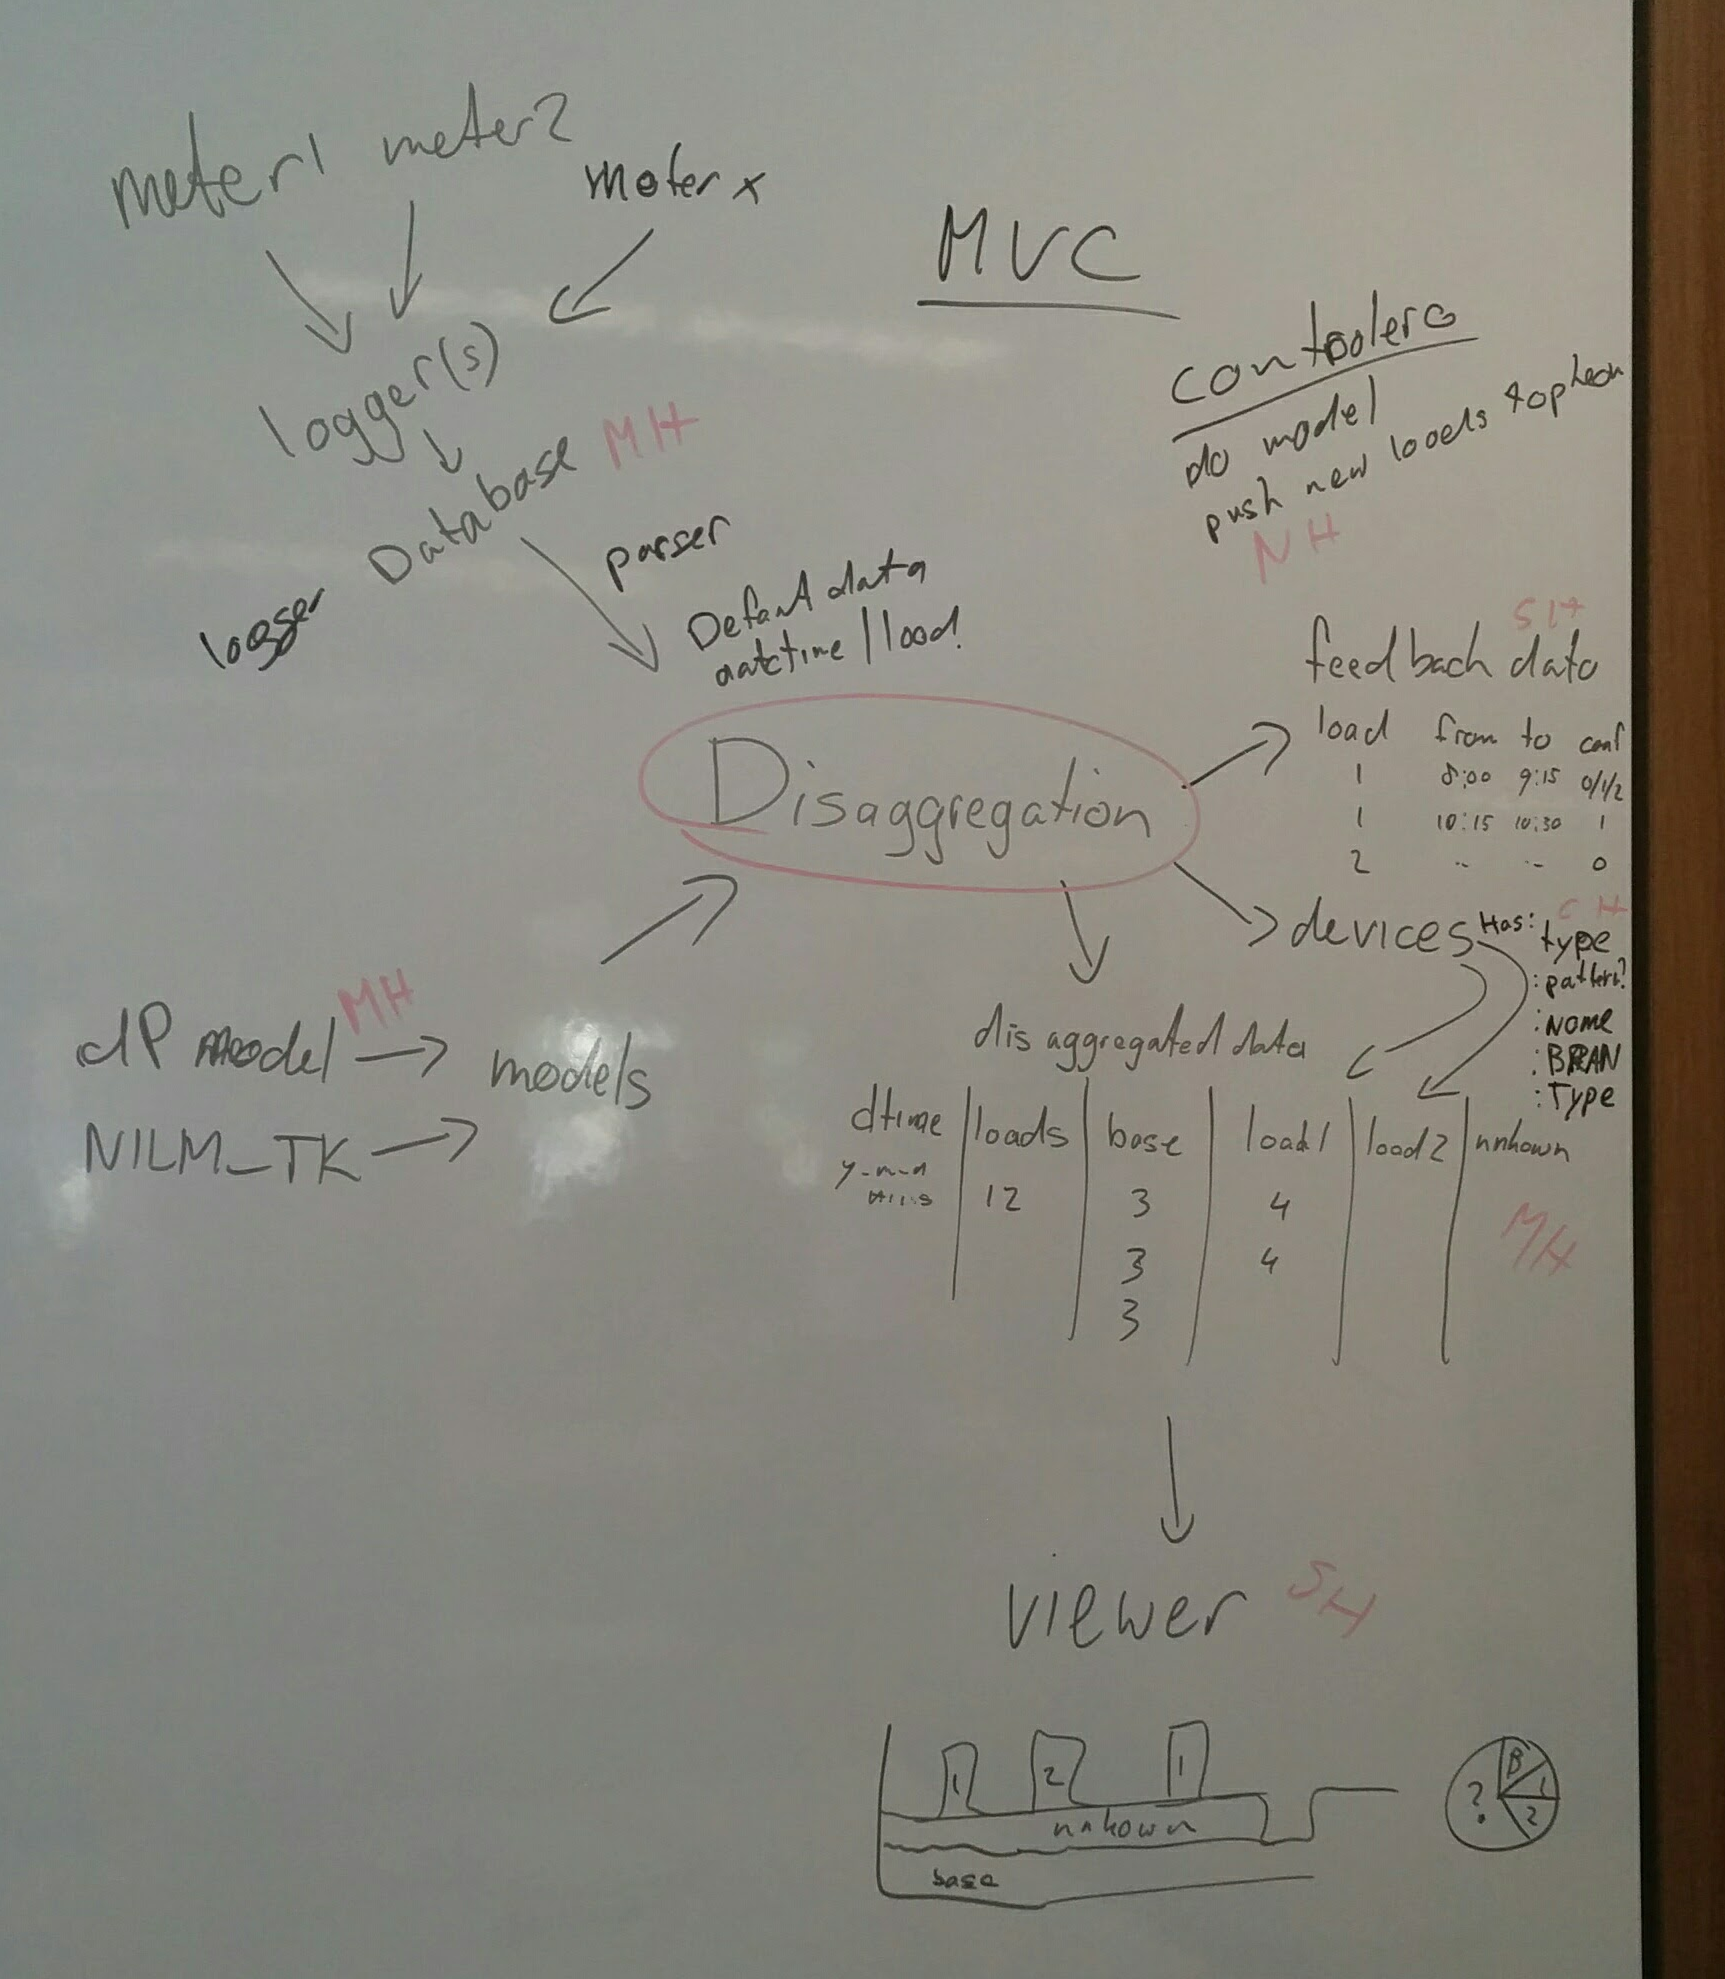 meter1 meter2 meter x
MVC
logger(s)
Database MH
logger
parser
Defant data
datetime / load!
controlerg
do model
push new loads
NH
SH
feedback data
load from to conf
1 8:00 9:15 0/1/2
1 10:15 10:30 1
2 .. .. 0
Disaggregation
CH
devices Has: type
: pattern?
: Name
: BRAN
: Type
dP model MH
models
NILM_TK
disaggregated data
dtime loads base load1 load2 unkown
y-m-d
12 3 4
3 4
3
MH
viewer SH
1 2 1
unkown
base
B 1 2 ?